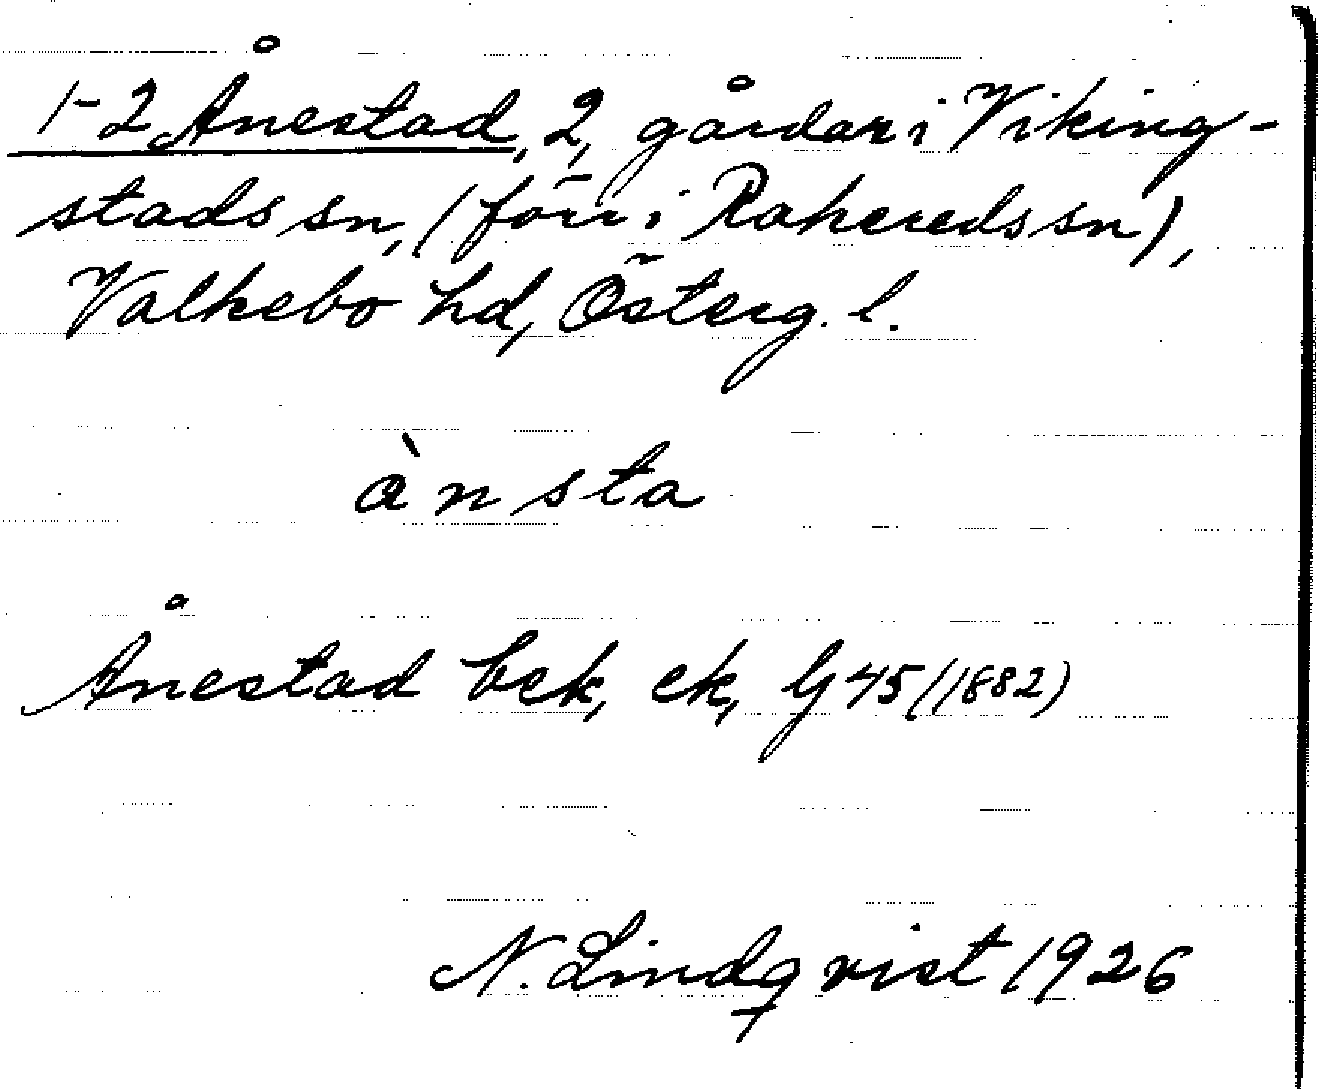 1-2 Ånestad, 2, gårdar i Viking-
stads sn, (förr i Rahereds sn),
Valkebo hd, Österg. l.
ànsta
Ånestad bek, ek, Gg 45 (1882)
N. Lindqvist 1926